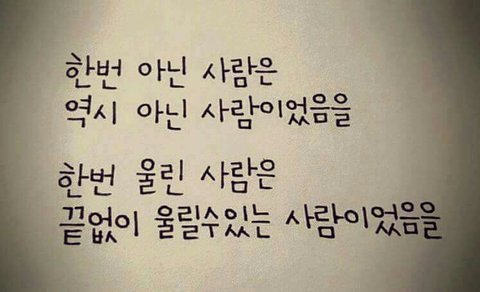 한번 아닌 사람은
역시 아닌 사람이었음을
한번 울린 사람은
끝없이 울릴수있는 사람이었음을